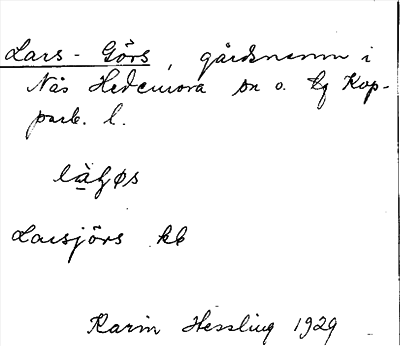 Lars-Görs, gårdsnamn i
Näs Hedemora sn o. tg Kop-
parb. l.
Larsjörs kb
Karin Hessling 1929